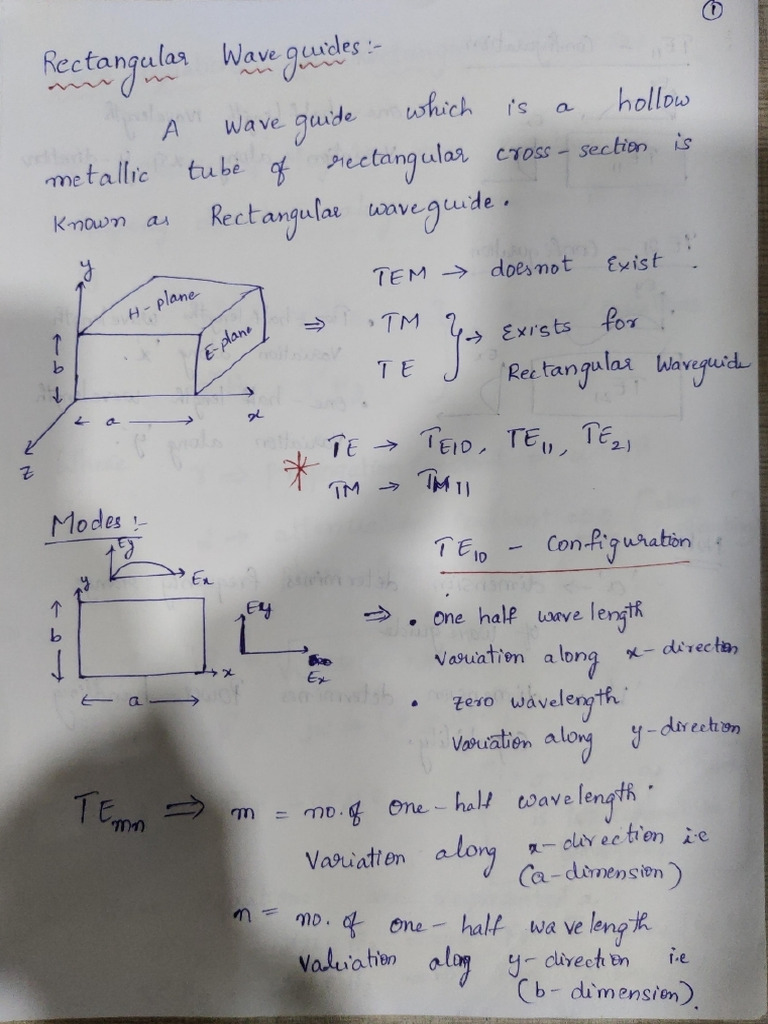 1
Rectangular Waveguides:-
A Wave guide which is a hollow
metallic tube of rectangular cross-section is
Known as Rectangular waveguide.
y
H-plane
E-plane
b
a
x
z
⇒
TEM → doesnot Exist.
TM
TE
} → Exists for
Rectangular Waveguide
* TE → TE10, TE11, TE21
TM → TM11
Modes:-
Ey
Ex
y
b
x
a
Ey
Ex
TE10 - Configuration
⇒ • one half wave length
variation along x-direction
• zero wavelength
variation along y-direction
TEmn ⇒ m = no. of one-half wavelength
Variation along x-direction i.e
(a-dimension)
n = no. of one-half wavelength
Variation along y-direction i.e
(b-dimension).